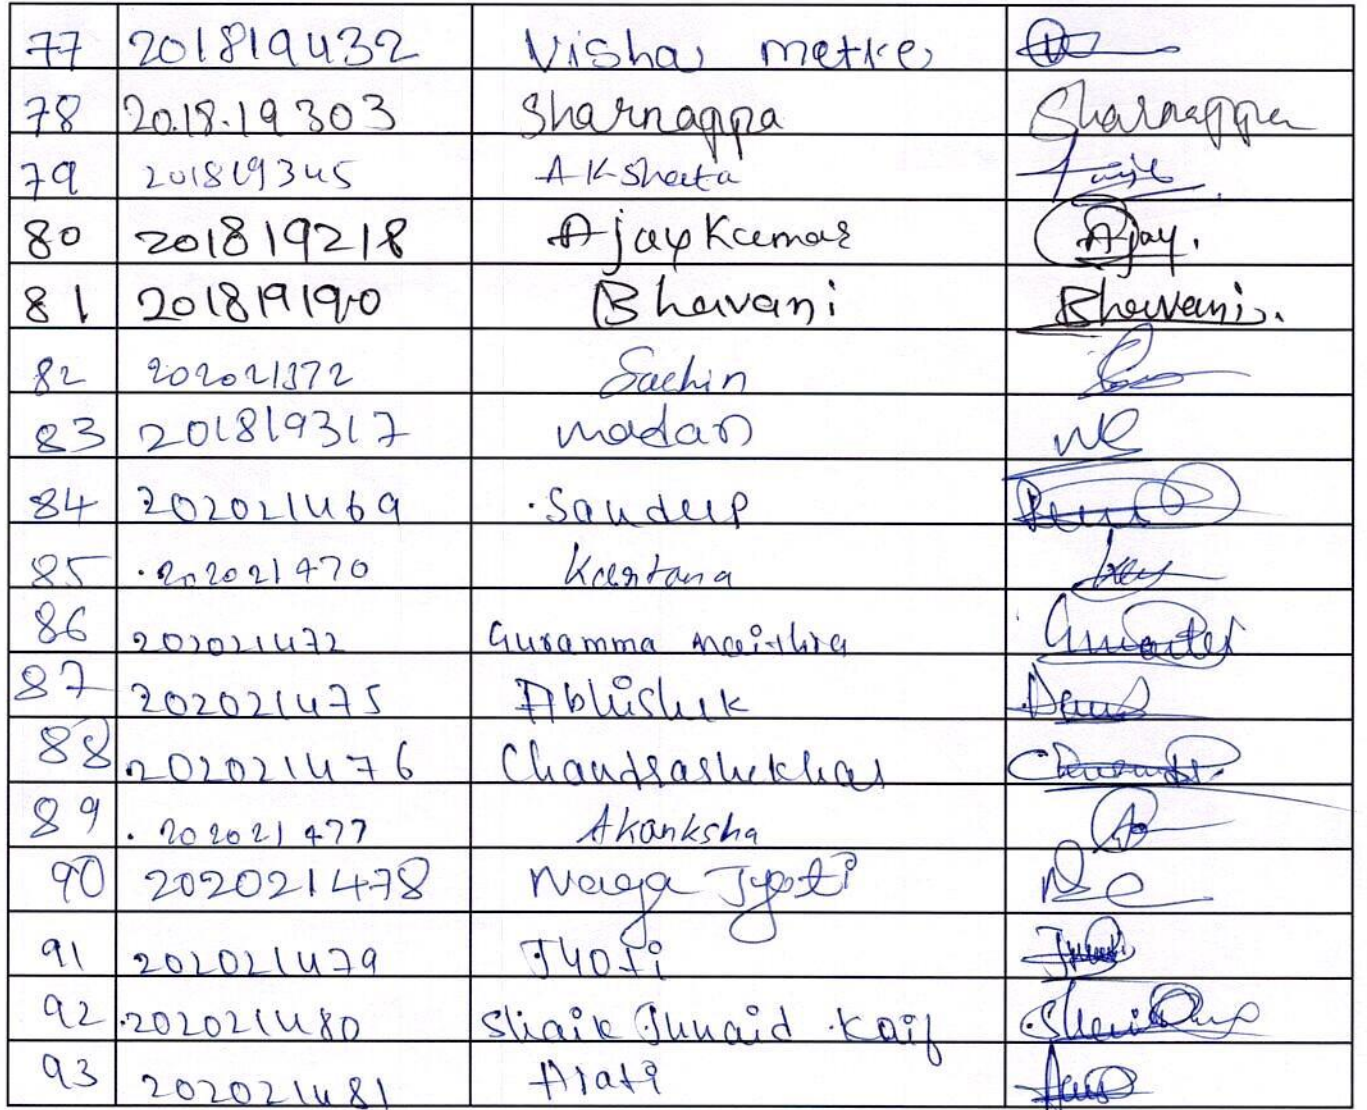 77 201819432 Visha metre
78 2018.19303 Sharnappa Sharnappa
79 201819345 Akshata
80 201819218 Ajay Kumar Ajay.
81 201819190 Bhavani Bhavani.
82 202021372 Sachin
83 201819317 madan
84 202021469 Sandeep
85 202021470 Keertana
86 202021472 Guramma
87 202021475 Abhishek
88 202021476 Chandrashekhar
89 202021477 Akanksha
90 202021478 Naga Jyoti
91 202021479 Jyoti
92 202021480 Shaik Junaid Kaif
93 202021481 Arati